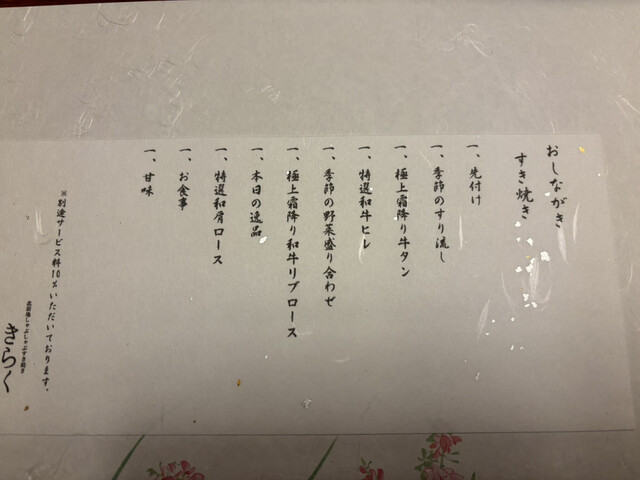 おしながき
すき焼き
一、先付け
一、季節のすり流し
一、極上霜降り牛タン
一、特選和牛ヒレ
一、季節の野菜盛り合わせ
一、極上霜降り和牛リブロース
一、本日の逸品
一、特選和肩ロース
一、お食事
一、甘味
※別途サービス料10%いただいております。
しゃぶしゃぶすき焼き
きらく